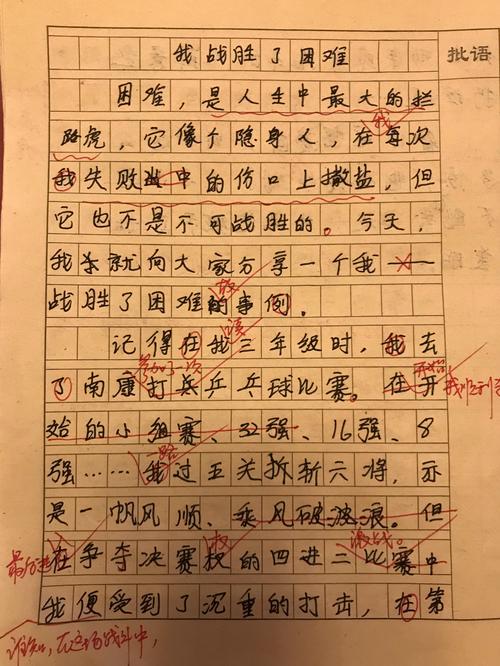 我战胜了困难
批语
困难，是人生中最大的拦
路虎，它像个隐身人，在每次
我
我失败中的伤口上撒盐，但
它也不是不可战胜的。今天，
我就向大家分享一个我
战胜了困难的事例。
故
记得在我三年级时，我去
读
参加了一次
了南康打乒乓球比赛。在开
开始
始的小组赛、32强、16强、8
一路
强……我过五关斩六将，亦
是一帆风顺、乘风破浪。但
激战。
在争夺决赛权的四进二比赛中
我便受到了沉重的打击，在第
谁知，在这场战斗中，